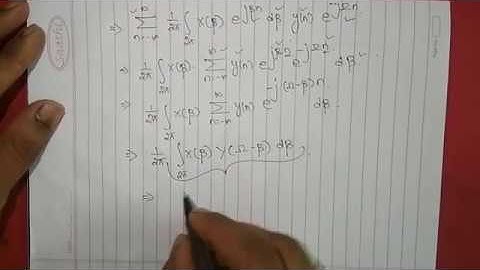 ⇒ ∑_{n=-∞}^{∞} 1/2π ∫_{2π} X(β) e^{jβn} dβ y(n) e^{-jΩn}
⇒ 1/2π ∫_{2π} X(β) ∑_{n=-∞}^{∞} y(n) e^{jβn} e^{-jΩn} dβ
⇒ 1/2π ∫_{2π} X(β) ∑_{n=-∞}^{∞} y(n) e^{-j(Ω-β)n} dβ.
⇒ 1/2π ∫_{2π} X(β) Y(Ω-β) dβ.
⇒